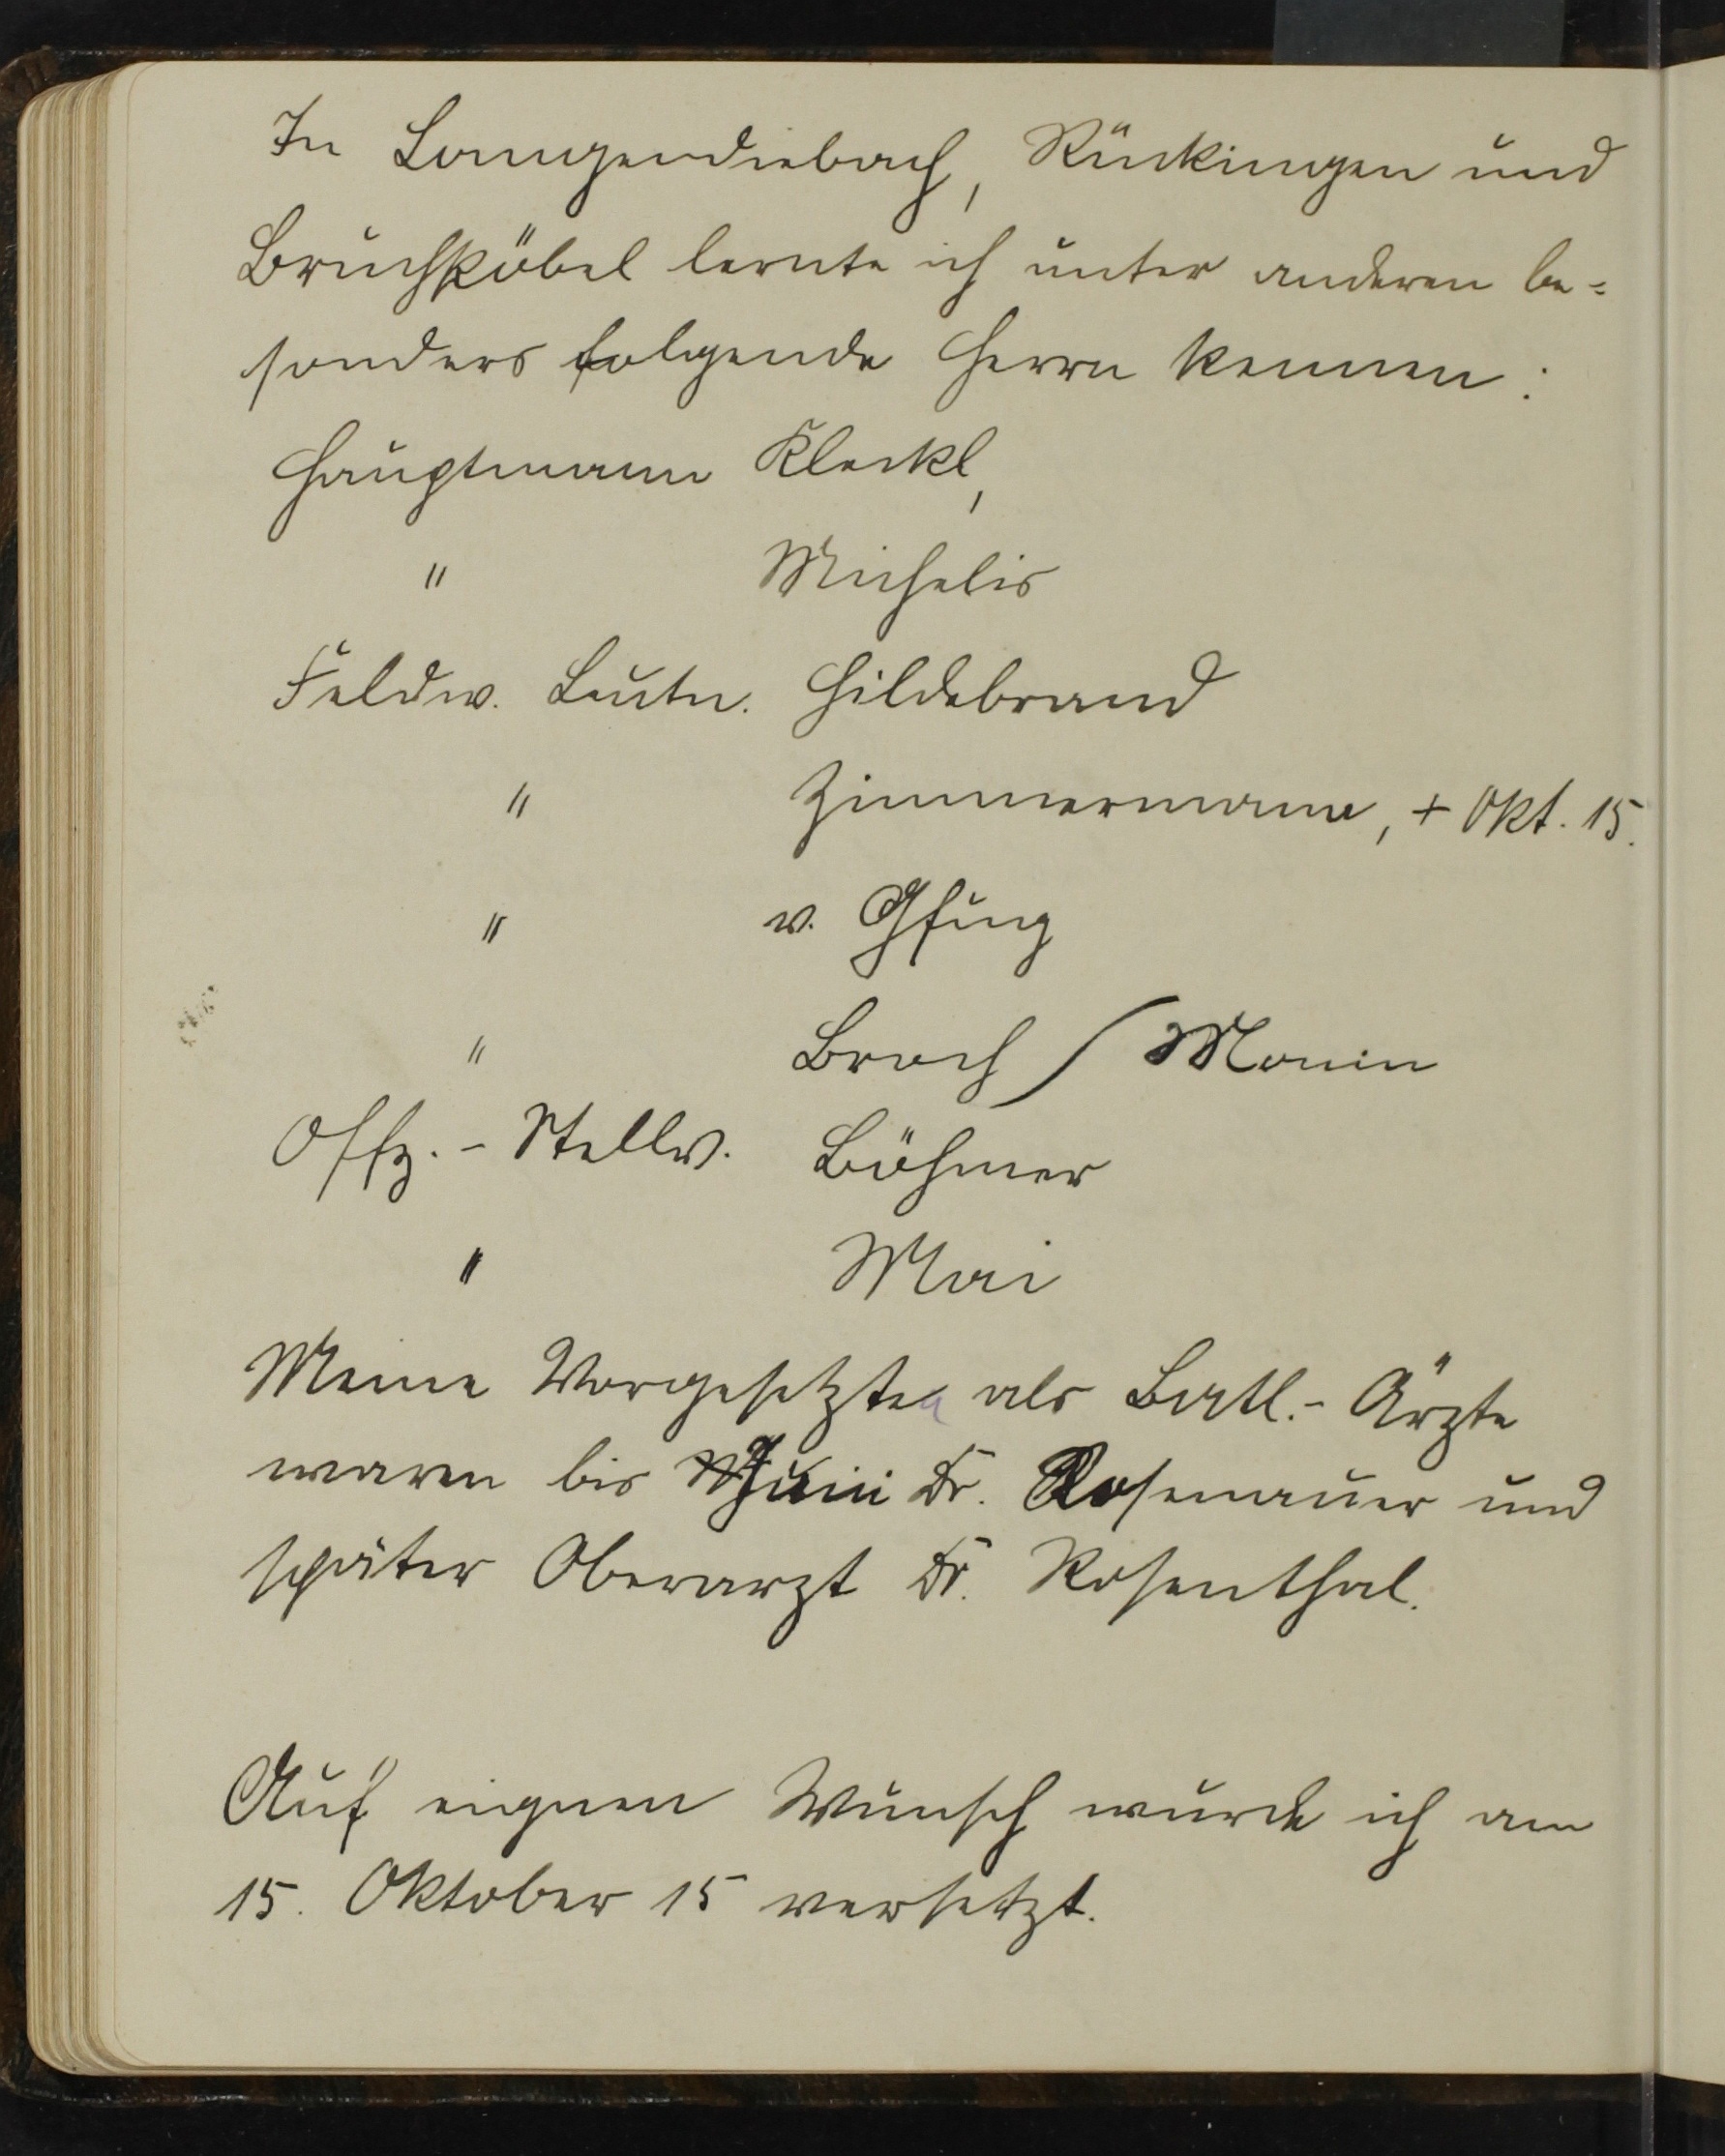 In Langendiebach, Rückingen und
Bruchköbel lernte ich unter anderen be=
sonders folgende Herrn kennen:
Hauptmann Kleckl,
" Michelis
Feldw. Leutn. Hildebrand
" Zimmermann, + Okt. 15.
" v.
" Broch / Monin
Offz.-Stellv. Böhmer
" Mai
Meine Vorgesetzten als Batl.-Ärzte
waren bis Juni Dr. Rosenauer und
später Oberarzt Dr. Rosenthal.
Auf eignen Wunsch wurde ich am
15. Oktober 15 versetzt.